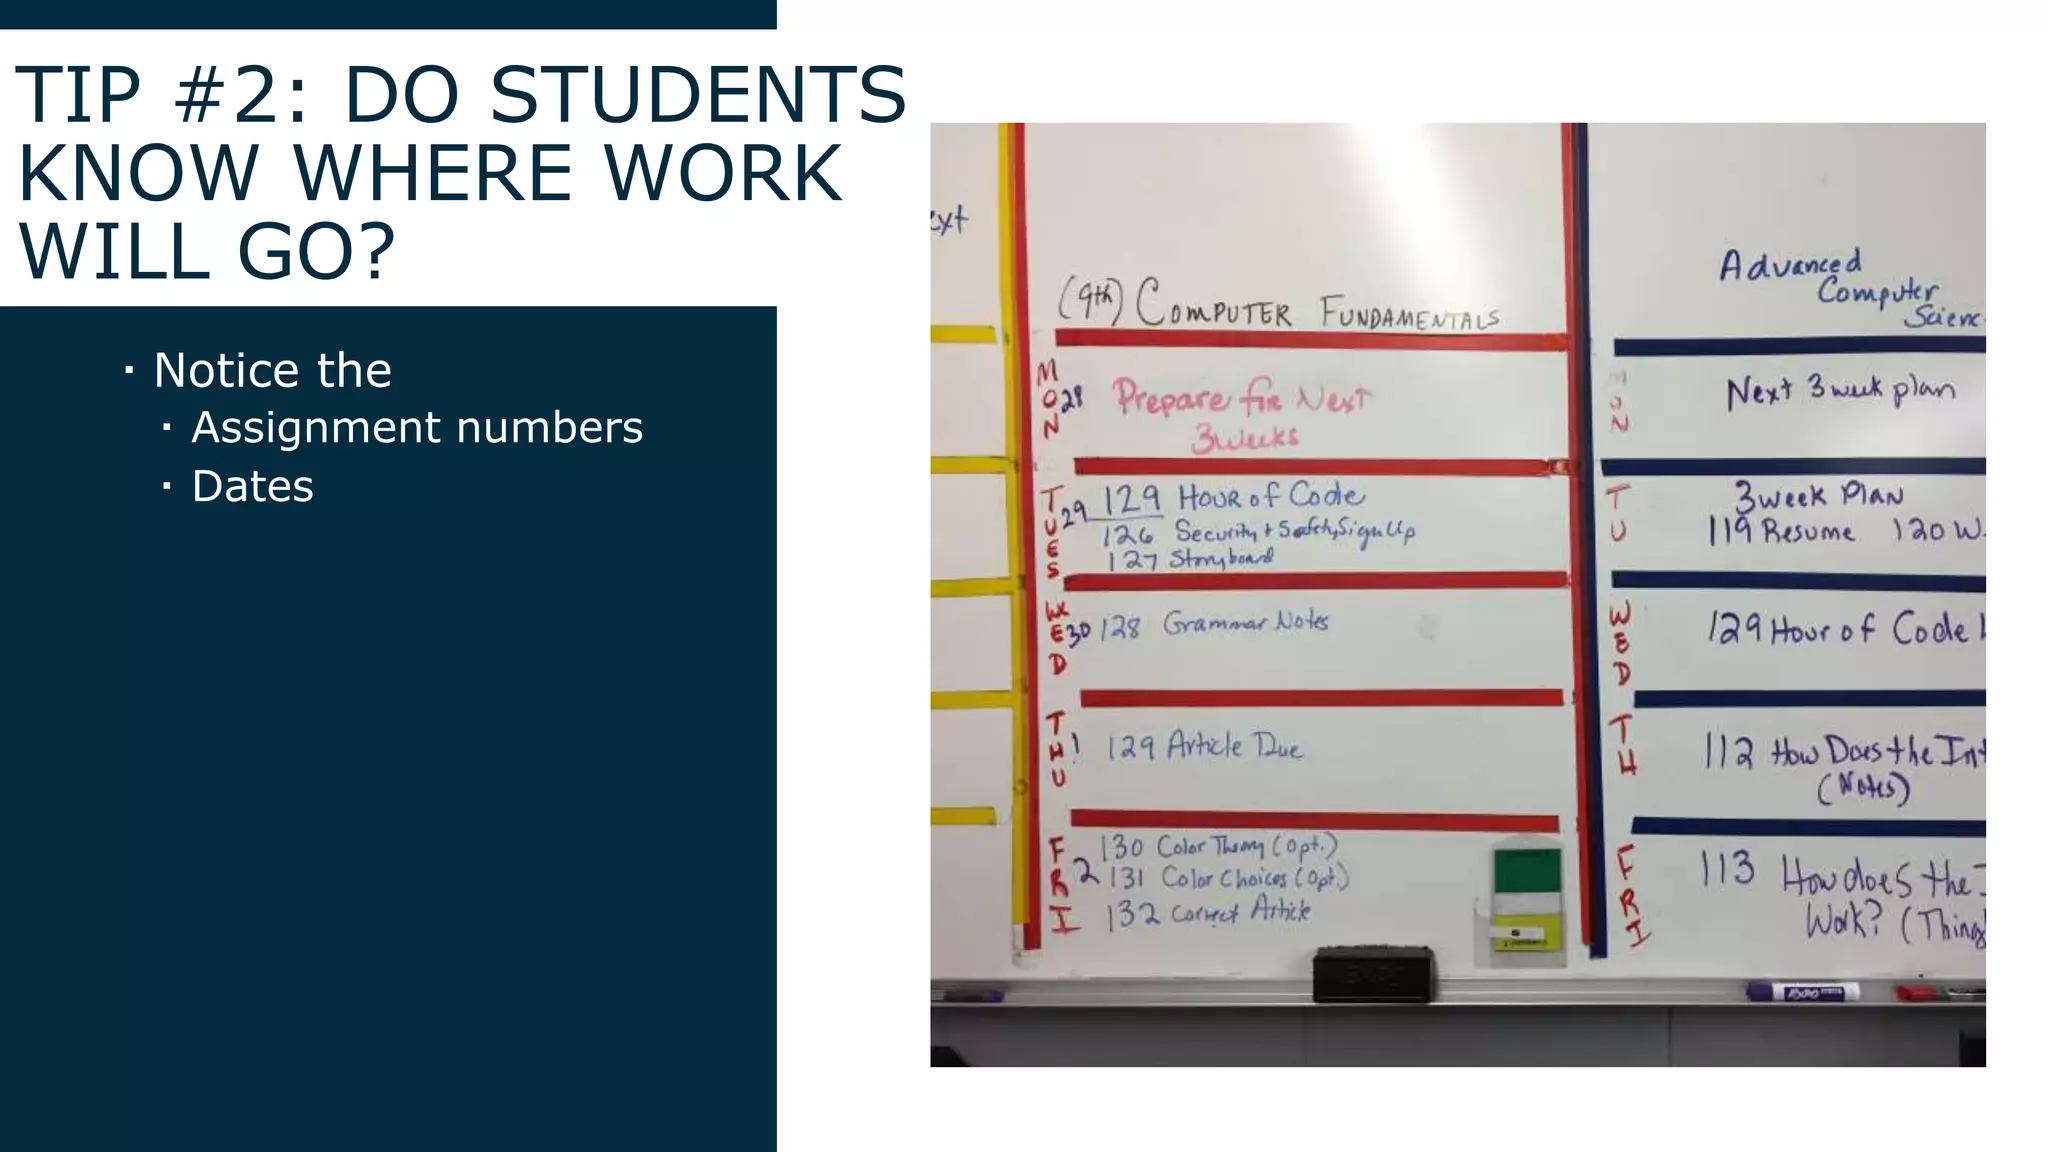 TIP #2: DO STUDENTS
KNOW WHERE WORK
WILL GO?
▪ Notice the
▪ Assignment numbers
▪ Dates
ext
(9th) COMPUTER FUNDAMENTALS
MON
28
Prepare for Next
3 Weeks
TUES
29
129 Hour of Code
126 Security + Safety Sign Up
127 Storyboard
WED
30
128 Grammar Notes
THU
1
129 Article Due
FRI
2
130 Color Theory (Opt.)
131 Color Choices (Opt.)
132 Correct Article
Advanced
Computer
Scienc
MON
Next 3 week plan
TU
3 week Plan
119 Resume 120 W
WED
129 Hour of Code
TH
112 How Does the Int
(Notes)
FRI
113 How does the I
Work? (Things
EXPO